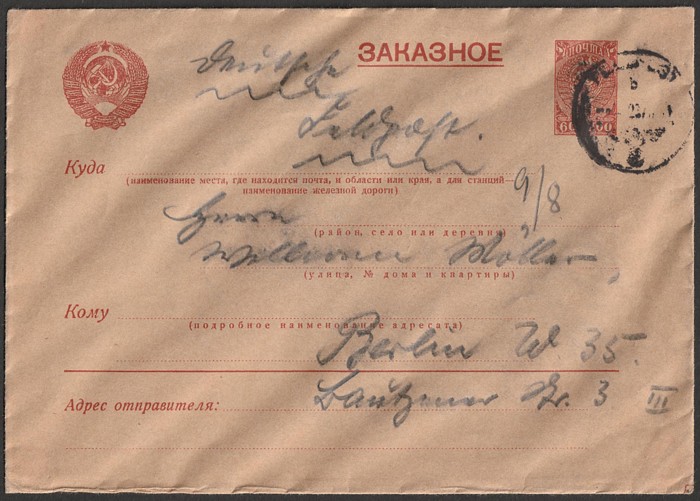 Deutsche
ЗАКАЗНОЕ
ПОЧТА
60 60
Feldpost.
Куда
(наименование места, где находится почта, и области или края, а для станций—
наименование железной дороги)
9/8
Herrn
(район, село или деревня)
William Möller
(улица, № дома и квартиры)
Кому
(подробное наименование адресата)
Berlin W 35.
Адрес отправителя:
Bautzener Str. 3 III